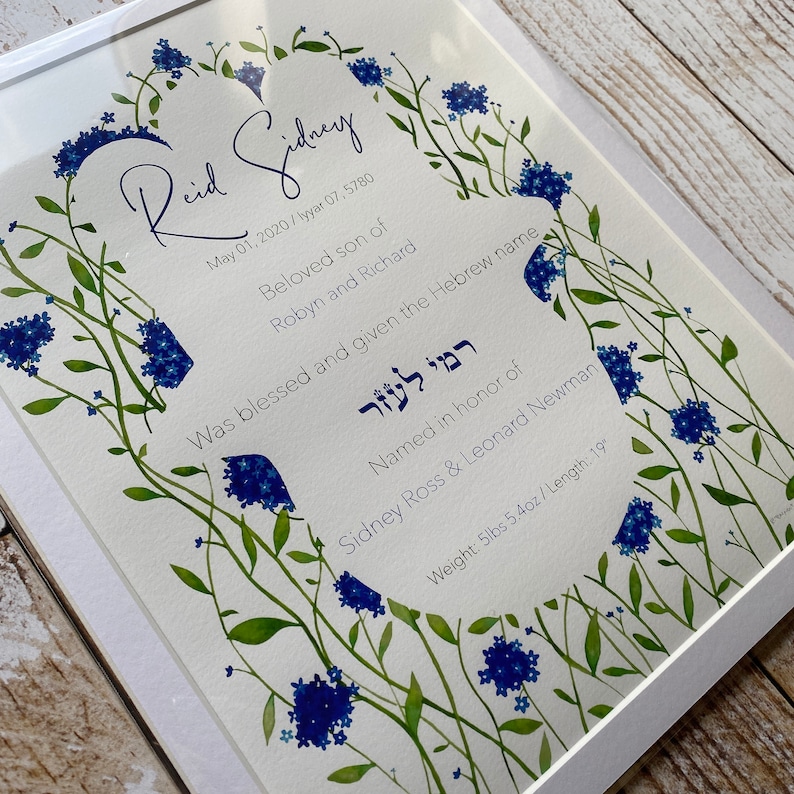 Reid Sidney
May 01, 2020 / Iyyar 07, 5780
Beloved son of
Robyn and Richard
Was blessed and given the Hebrew name
רמי לעזר
Named in honor of
Sidney Ross & Leonard Newman
Weight: 5lbs 5.4oz / Length: 19"